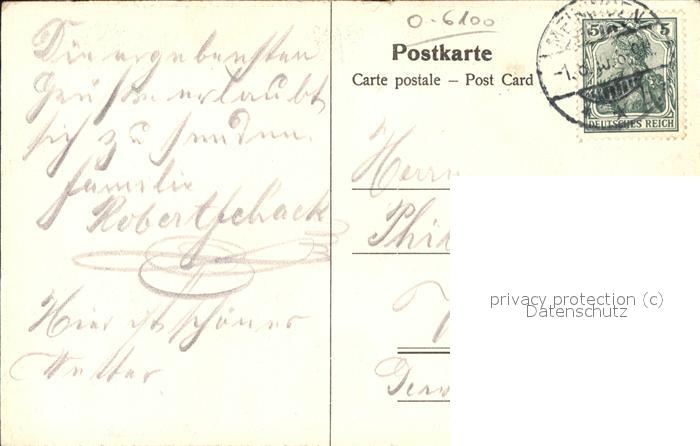 Die ergebensten
Grüsse erlaubt
sich zu senden.
Familie
Robert Schack
Hier ist schönes
Wetter.
0-6100
Postkarte
Carte postale – Post Card
MEININGEN
5 5
DEUTSCHES REICH
Herrn
privacy protection (c)
Datenschutz